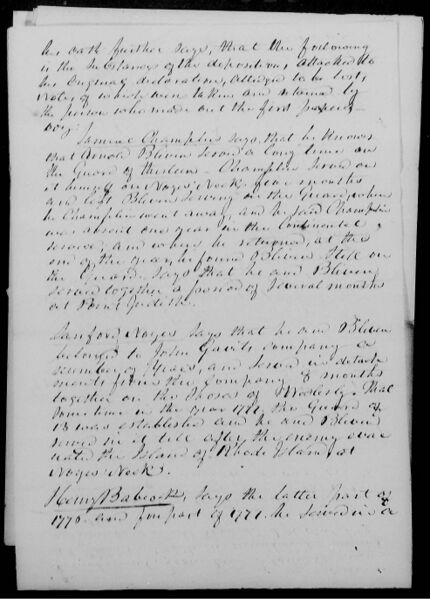 his oath further says, that the following
is the substance of the depositions attached to
his original declaration, alleged to be lost,
Notes of which were taken and retained by
the person who made out the first papers,
Viz:
Samuel Champlin says, that he knows
that Arnold Bliven served a long time on
the Guard of thirteen - Champlin served on
it himself on Noyes' Neck four months
and left Bliven serving on the Guard, when
he Champlin went away, and he said Champlin
was absent one year in the Continental
service, and when he returned, at the
end of the year, he found Bliven still on
the Guard. Says that he and Bliven
served together a period of several months
at Point Judith.
Sanford Noyes says that he and Bliven
belonged to John Gavits company a
number of years, and served in detach
ments from the Company 8 months
together on the Shores of Westerly. That
sometime in the year 1777, the Guard of
13 was established and he and Bliven
served in it till after the enemy evac
uated the Island of Rhode Island at
Noyes' Neck.
Henry Babcock, says the latter part of
1776 and fore part of 1777 he served in a